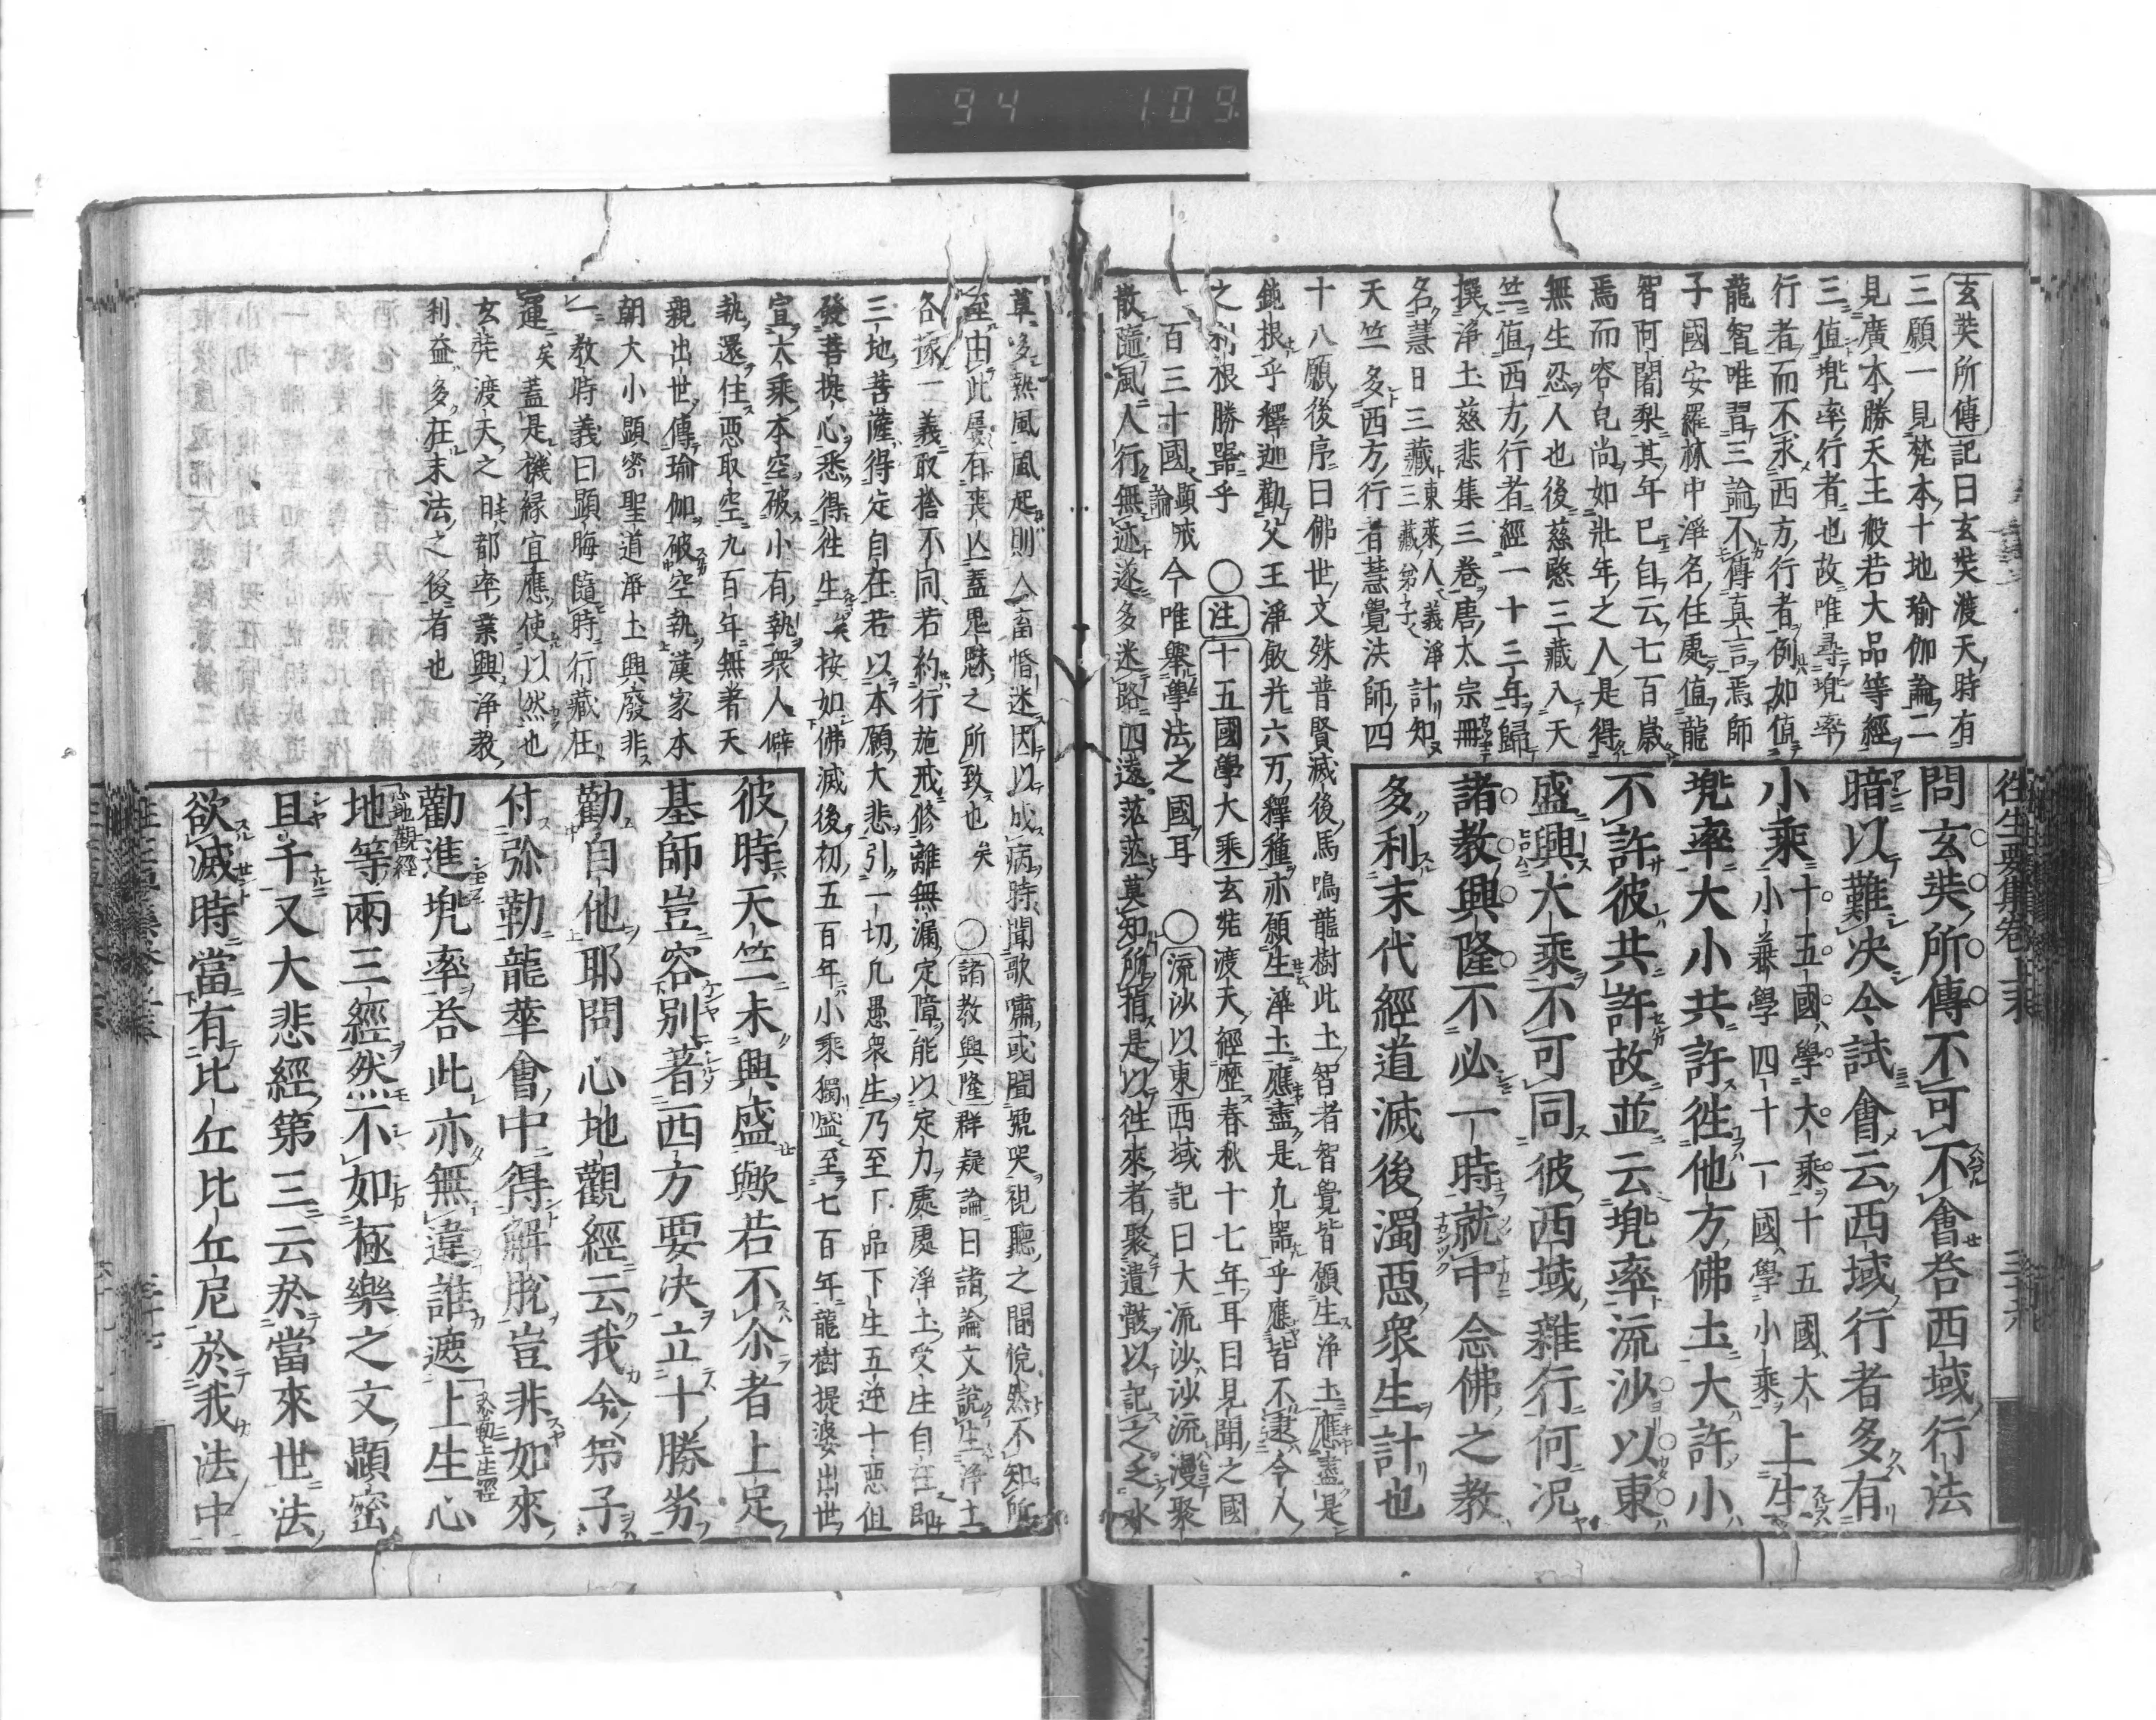 94 109
往生要集卷上末
玄奘所傳記曰玄奘渡天時有
三願一見梵本十地瑜伽論二
見廣本勝天王般若大品等經
三值兜率行者也故唯尋兜率
行者而不求西方行者例如值
龍智唯習三論不傳真言焉師
子國安羅林中淨名住處值龍
智阿闍梨其年已自云七百歲
焉而容皃尚如壯年之人是得
無生忍人也後慈愍三藏入天
竺值西方行者經一十三年歸
撰淨土慈悲集三卷唐太宗冊
名慧日三藏東萊人義淨三藏弟子計知
天竺多西方行者慧覺法師四
十八願後序曰佛世文殊普賢滅後馬鳴龍樹此土智者智覺皆願生淨土應盡是
鈍根乎釋迦勸父王淨飯并六万釋種亦願生淨土應盡是九器乎應皆不逮今人
之利根勝器乎 ○注十五國學大乘玄奘渡天經歷春秋十七年耳目見聞之國
百三十國顯戒論今唯舉學法之國耳 ○流沙以東西域記曰大流沙沙流漫聚
散隨風人行無迹遂多迷路四遠茫茫莫知所指是以往來者聚遺骸以記之乏水
問玄奘所傳不可不會荅西域行法
暗以難決今試會云西域行者多有
小乘十五國學大乘十五國大小兼學四十一國學小乘上生
兜率大小共許往他方佛土大許小
不許彼共許故並云兜率流沙以東
盛興大乘不可同彼西域雜行何況
諸教興隆不必一時就中念佛之教
多利末代經道滅後濁惡衆生計也
草多熱風風起則人畜惛迷因以成病時聞歌嘯或聞號哭視聽之間恍然不知所
至由此屢有喪亾蓋鬼魅之所致也矣 ○諸教興隆群疑論曰諸論文說生淨土
各據一義取捨不同若約行施戒修離無漏定障能以定力處處淨土受生自在即
三地菩薩得定自在若以本願大悲引一切凡愚衆生乃至下品下生五逆十惡但
發菩提心悉得往生矣按如佛滅後初五百年小乘獨盛至七百年龍樹提婆出世
宣大乘本空破小有執衆人僻
執還住惡取空九百年無著天
親出世傳瑜伽破空執漢家本
朝大小顯密聖道淨土興廢非
一教時義曰顯晦隨時行藏在
運矣蓋是機緣宜應使以然也
玄奘渡天之日都率業興淨教
利益多在末法之後者也
彼時天竺未興盛歟若不尒者上足
基師豈容別著西方要決立十勝劣
勸自他耶問心地觀經云我今弟子
付弥勒龍華會中得解脫豈非如來
勸進兜率荅此亦無違誰遮上生心
地等兩三經然不如極樂之文顯密
且千又大悲經第三云於當來世法
欲滅時當有比丘比丘尼於我法中